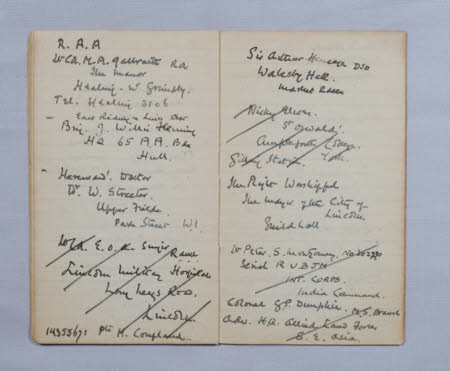 R. A. A
W/Cdr. M.A. Galbraith RA
The Manor
Healing - W Grimsby.
Tel. Healing 3106
East Riding & Lincs
Brig. J. Willis Fleming
HQ 65 A.A. Bde
Hull.
Hereward's Doctor
Dr. W. Streeter
Upper Feilde.
Park Street W1
W/Cdr. E. O. A. Singer
Lincoln Military Hospital
Long Leys Road.
Lincoln.
14355671 Pte H. Coupland.
Sir Arthur Heneage DSO
Walesby Hall.
Market Rasen
Nicky
St Oswald's
Ampleforth College.
Gilling York.
The Right Worshipful
The Mayor of the City of
Lincoln.
Guildhall
Peter. S. Montgomery. No
Serial R U B J M
INT. CORPS.
India Command.
Colonel M.S. Branch
Adv. H.Q. Allied Land Forces
S. E. Asia.